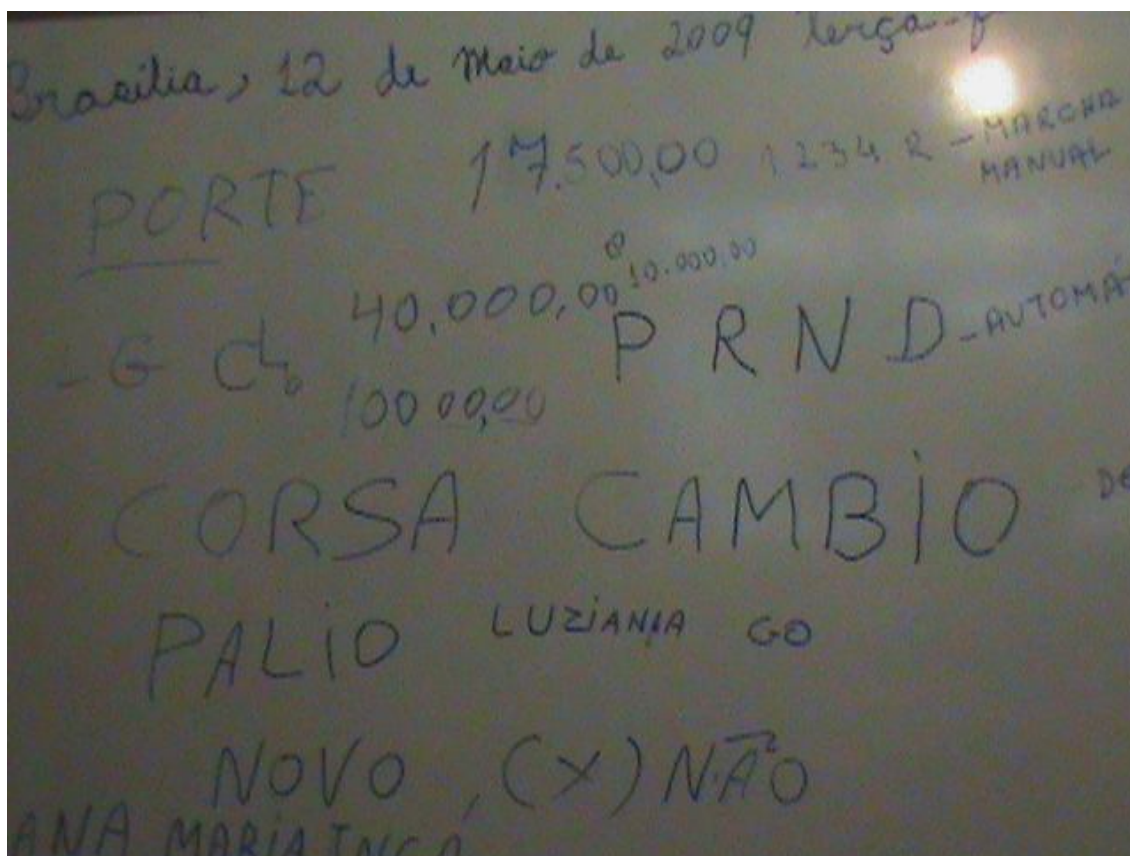 Brasilia, 12 de Maio de 2009 terça-f
PORTE 17.500,00 1 2 3 4 R - MARCHA
MANUAL
40.000,00 e 10.000,00
- G P R N D - AUTOMÁ
100 00,00
CORSA CAMBIO DE
PALIO LUZIANIA GO
NOVO, (X) NÃO
ANA MARIA